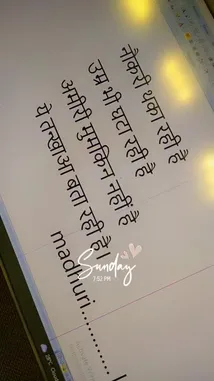 नौकरी थका रही है
उम्र भी घटा रही है
अमीरी मुमकिन नहीं है
ये तन्खाआ बता रही है।
madhuri..............
Sunday
7:52 PM